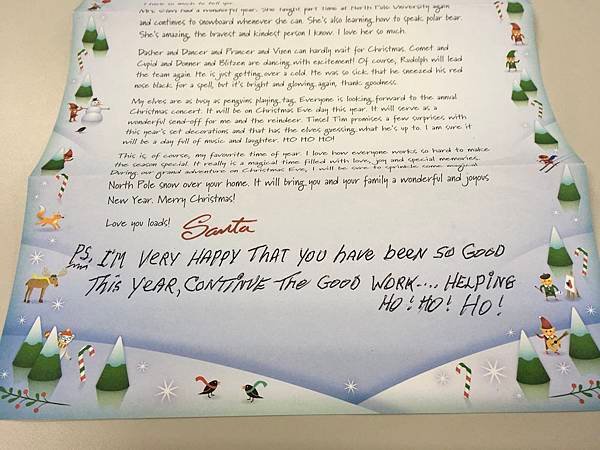 I have so much to tell you.
Mrs. Claus had a wonderful year. She taught part time at North Pole University again
and continues to snowboard whenever she can. She's also learning how to speak polar bear.
She's amazing, the bravest and kindest person I know. I love her so much.
Dasher and Dancer and Prancer and Vixen can hardly wait for Christmas. Comet and
Cupid and Donner and Blitzen are dancing with excitement! Of course, Rudolph will lead
the team again. He is just getting over a cold. He was so sick that he sneezed his red
nose black for a spell, but it's bright and glowing again, thank goodness.
My elves are as busy as penguins playing tag. Everyone is looking forward to the annual
Christmas concert. It will be on Christmas Eve day this year. It will serve as a
wonderful send-off for me and the reindeer. Tinsel Tim promises a few surprises with
this year's set decorations and that has the elves guessing what he's up to. I am sure it
will be a day full of music and laughter. HO HO HO!
This is, of course, my favourite time of year. I love how everyone works so hard to make
the season special. It really is a magical time filled with love, joy and special memories.
During our grand adventure on Christmas Eve, I will be sure to sprinkle some magical
North Pole snow over your home. It will bring you and your family a wonderful and joyous
New Year. Merry Christmas!
Love you loads! Santa
PS. I'M VERY HAPPY THAT YOU HAVE BEEN SO GOOD
THIS YEAR, CONTINUE THE GOOD WORK.... HELPING
HO! HO! HO!